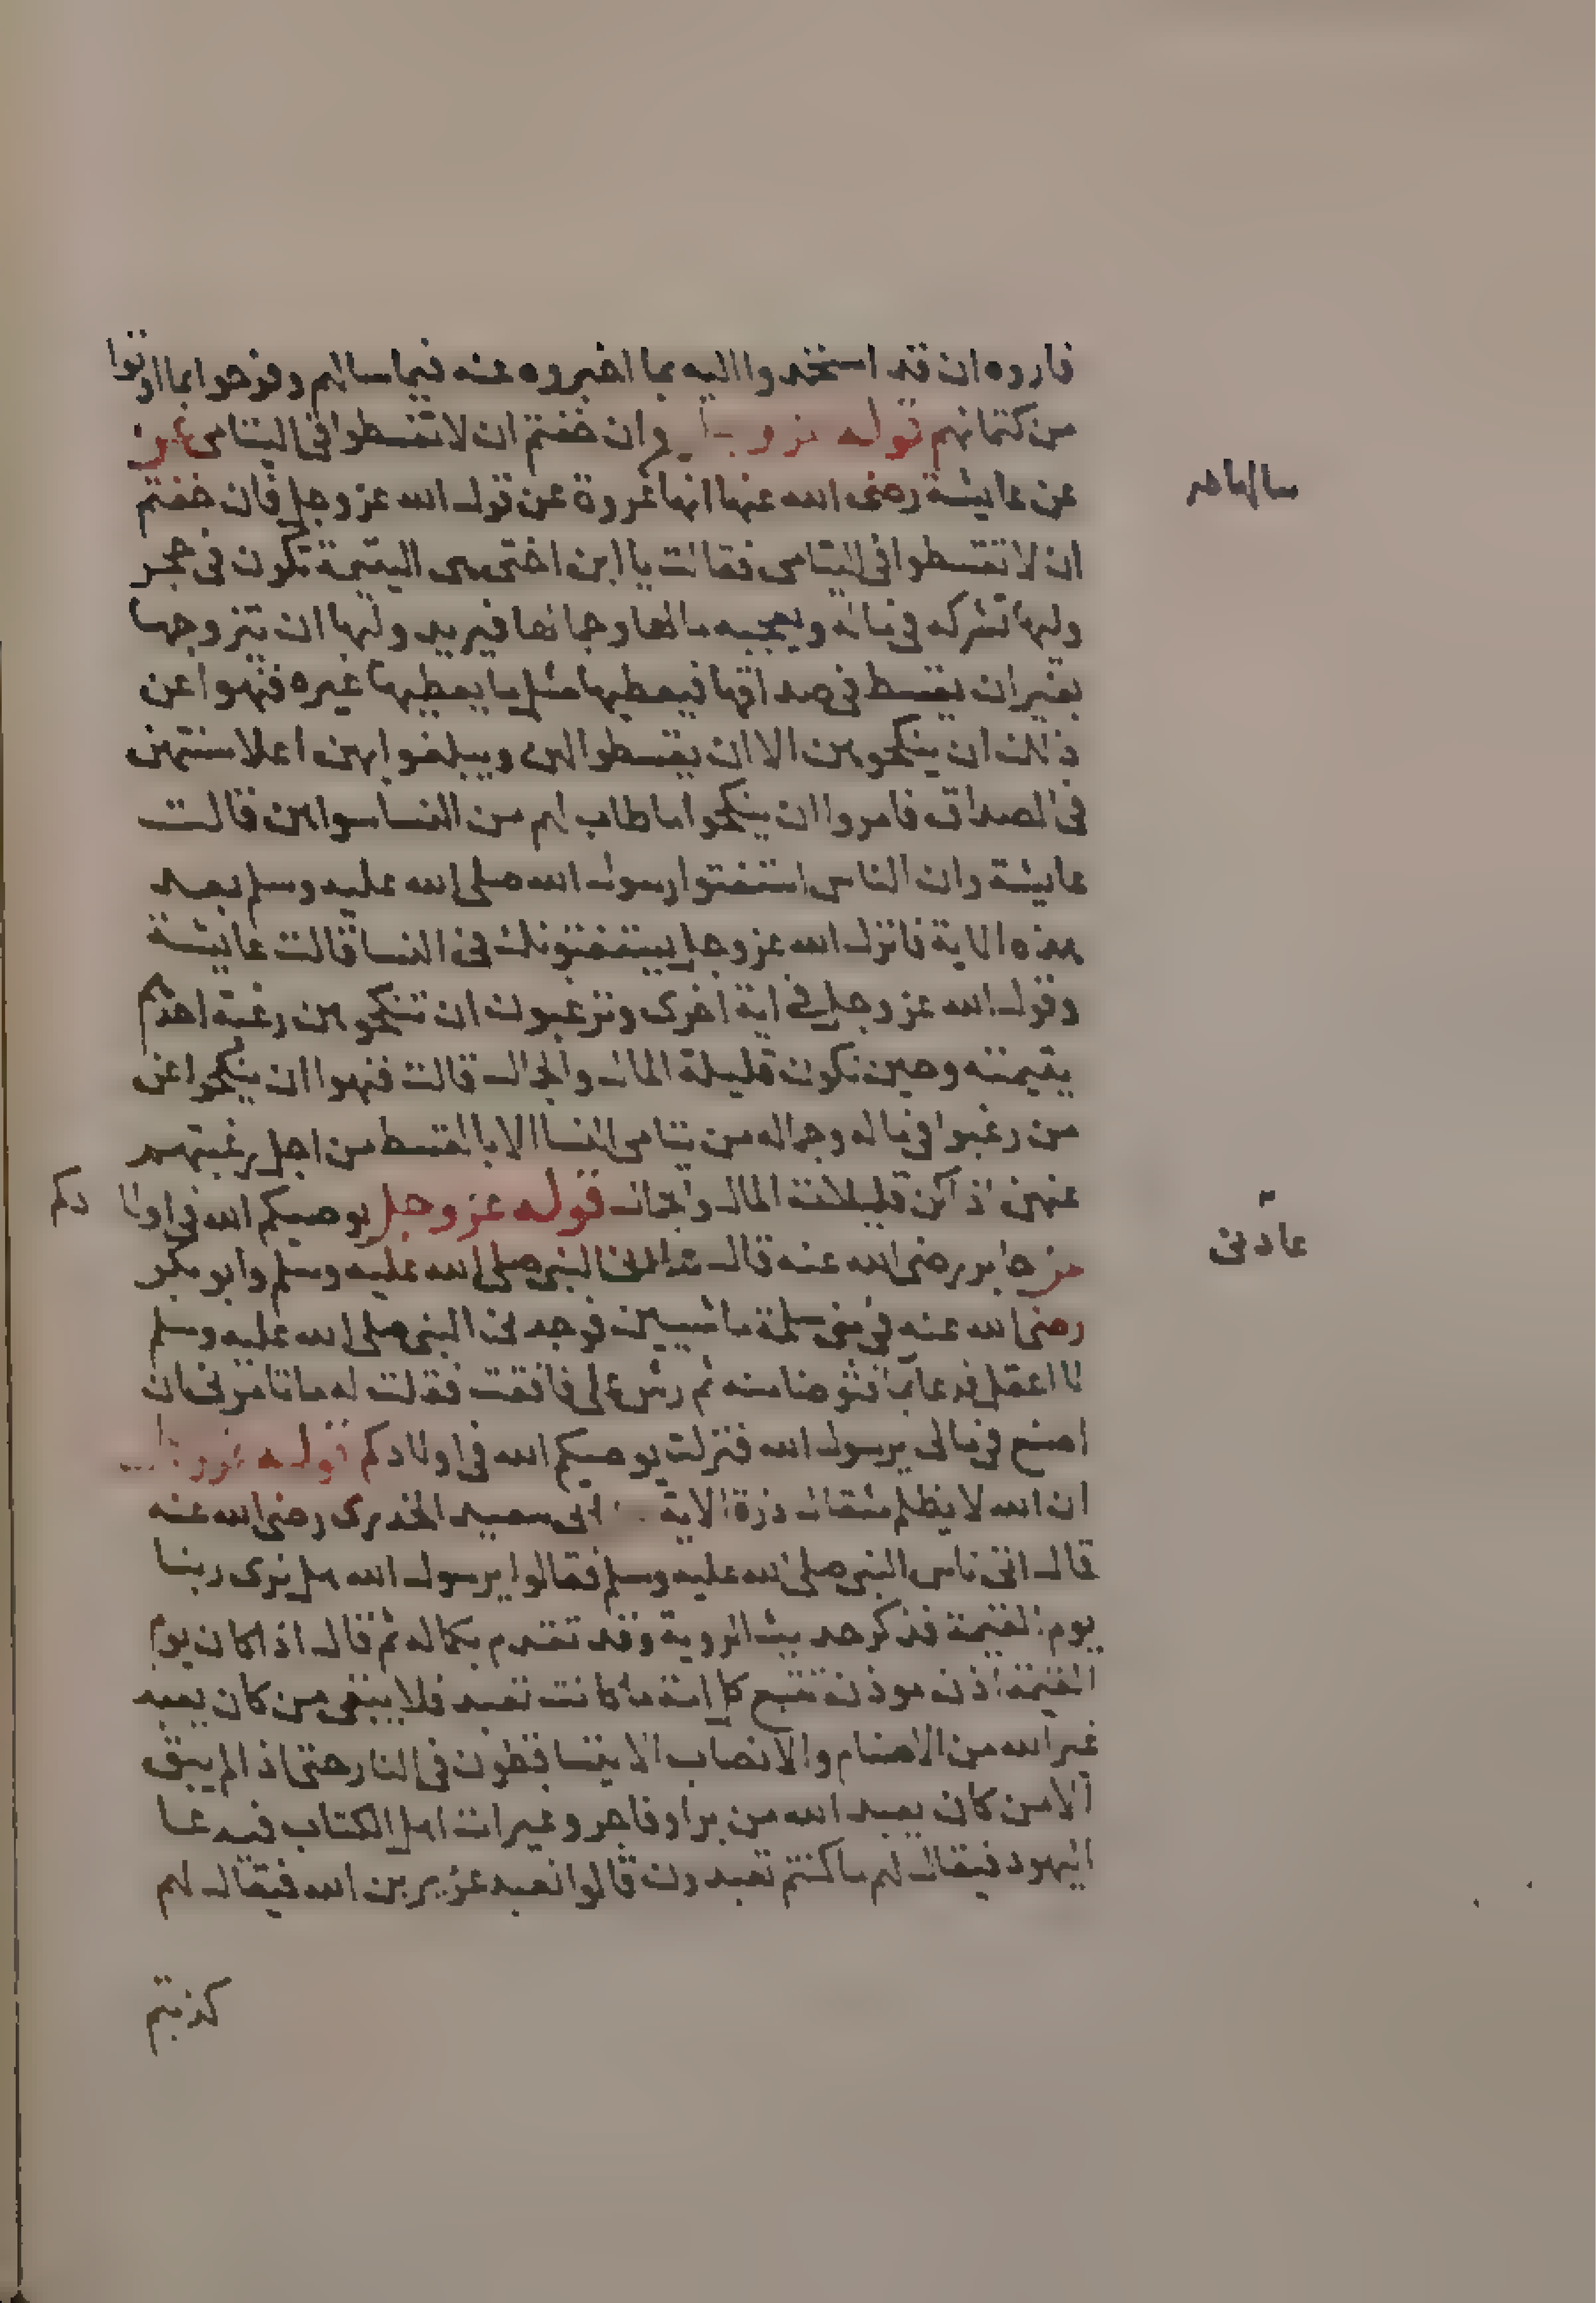 فاروه ان قد استخدوا اليه بما اخبروه عنه فيما سالهم وفرحوا بما اوتوا
من كتمانهم قوله عز وجل وان خفتم ان لا تقسطوا في اليتامى عن
عن عايشة رضى الله عنها انها عروة عن قول الله عز وجل فان خفتم
سالها هر
ان لا تقسطوا في اليتامى فقالت يا ابن اختى هى اليتيمة تكون في حجر
وليها تشركه في ماله ويعجبه مالها وجمالها فيريد وليها ان يتزوجها
بغير ان يقسط في صداقها فيعطيها مثل ما يعطيها غيره فنهوا عن
ذلك ان ينكحوهن الا ان يقسطوا لهن ويبلغوا بهن اعلا سنتهن
في الصداق فامروا ان ينكحوا ما طاب لهم من النسا سواهن قالت
عايشة وان الناس استفتوا رسول الله صلى الله عليه وسلم بعد
هذه الاية فانزل الله عز وجل يستفتونك في النسا قالت عايشة
وقول الله عز وجل في اية اخرى وترغبون ان تنكحوهن رغبة احدكم
يتيمته وحين تكون قليلة المال والجمال قالت فنهوا ان ينكحوا عن
من رغبوا في ماله وجماله من يتامى النسا الا بالقسط من اجل رغبتهم
عنهن اذ كن قليلات المال والجمال قوله عز وجل يوصيكم الله في اولا دكم
عن جابر رضى الله عنه قال عادنى النبي صلى الله عليه وسلم وابو بكر
عادنى
رضى الله عنه في بنى سلمة ماشيين فوجدنى النبي صلى الله عليه وسلم
لا اعقل فدعا بما فتوضا منه ثم رش على فافقت فقلت له ما تامرنى ان
اصنع في مالى يرسول الله فنزلت يوصيكم الله في اولادكم قوله عز وجل
ان الله لا يظلم مثقال ذرة الاية ابى سعيد الخدرى رضى الله عنه
قال اتى ناس النبي صلى الله عليه وسلم فقالوا يرسول الله هل نرى ربنا
يوم القيمة فذكر حديث الروية وقد تقدم بكماله ثم قال اذا كان يوم
القيمة اذن موذن تتبع كل امة ما كانت تعبد فلا يبقى من كان يعبد
غير الله من الاصنام والانصاب الا يتساقطون في النار حتى اذا لم يبق
الا من كان يعبد الله من بر او فاجر وغبرات اهل الكتاب فيدعا
اليهود فيقال لهم ما كنتم تعبدون قالوا نعبد عزير بن الله فيقال لهم
كذبتم